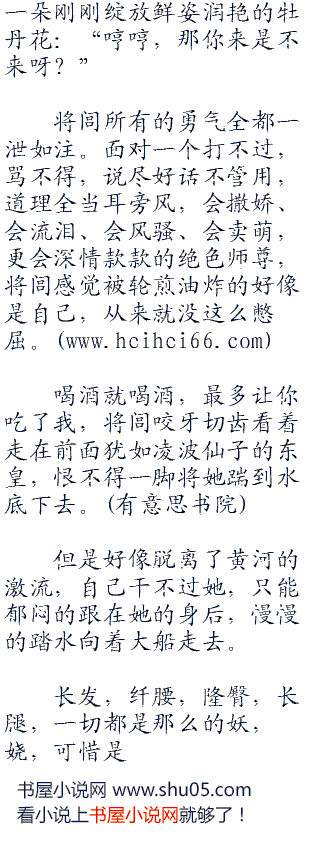 一朵刚刚绽放鲜姿润艳的牡
丹花：“哼哼，那你来是不
来呀？”
将闾所有的勇气全都一
泄如注。面对一个打不过，
骂不得，说尽好话不管用，
道理全当耳旁风，会撒娇、
会流泪、会风骚、会卖萌，
更会深情款款的绝色师尊，
将闾感觉被轮煎油炸的好像
是自己，从来就没这么憋
屈。(www.hcihci66.com)
喝酒就喝酒，最多让你
吃了我，将闾咬牙切齿看着
走在前面犹如凌波仙子的东
皇，恨不得一脚将她踹到水
底下去。(有意思书院)
但是好像脱离了黄河的
激流，自己干不过她，只能
郁闷的跟在她的身后，漫漫
的踏水向着大船走去。
长发，纤腰，隆臀，长
腿，一切都是那么的妖，
娆，可惜是
书屋小说网 www.shu05.com
看小说上书屋小说网就够了！